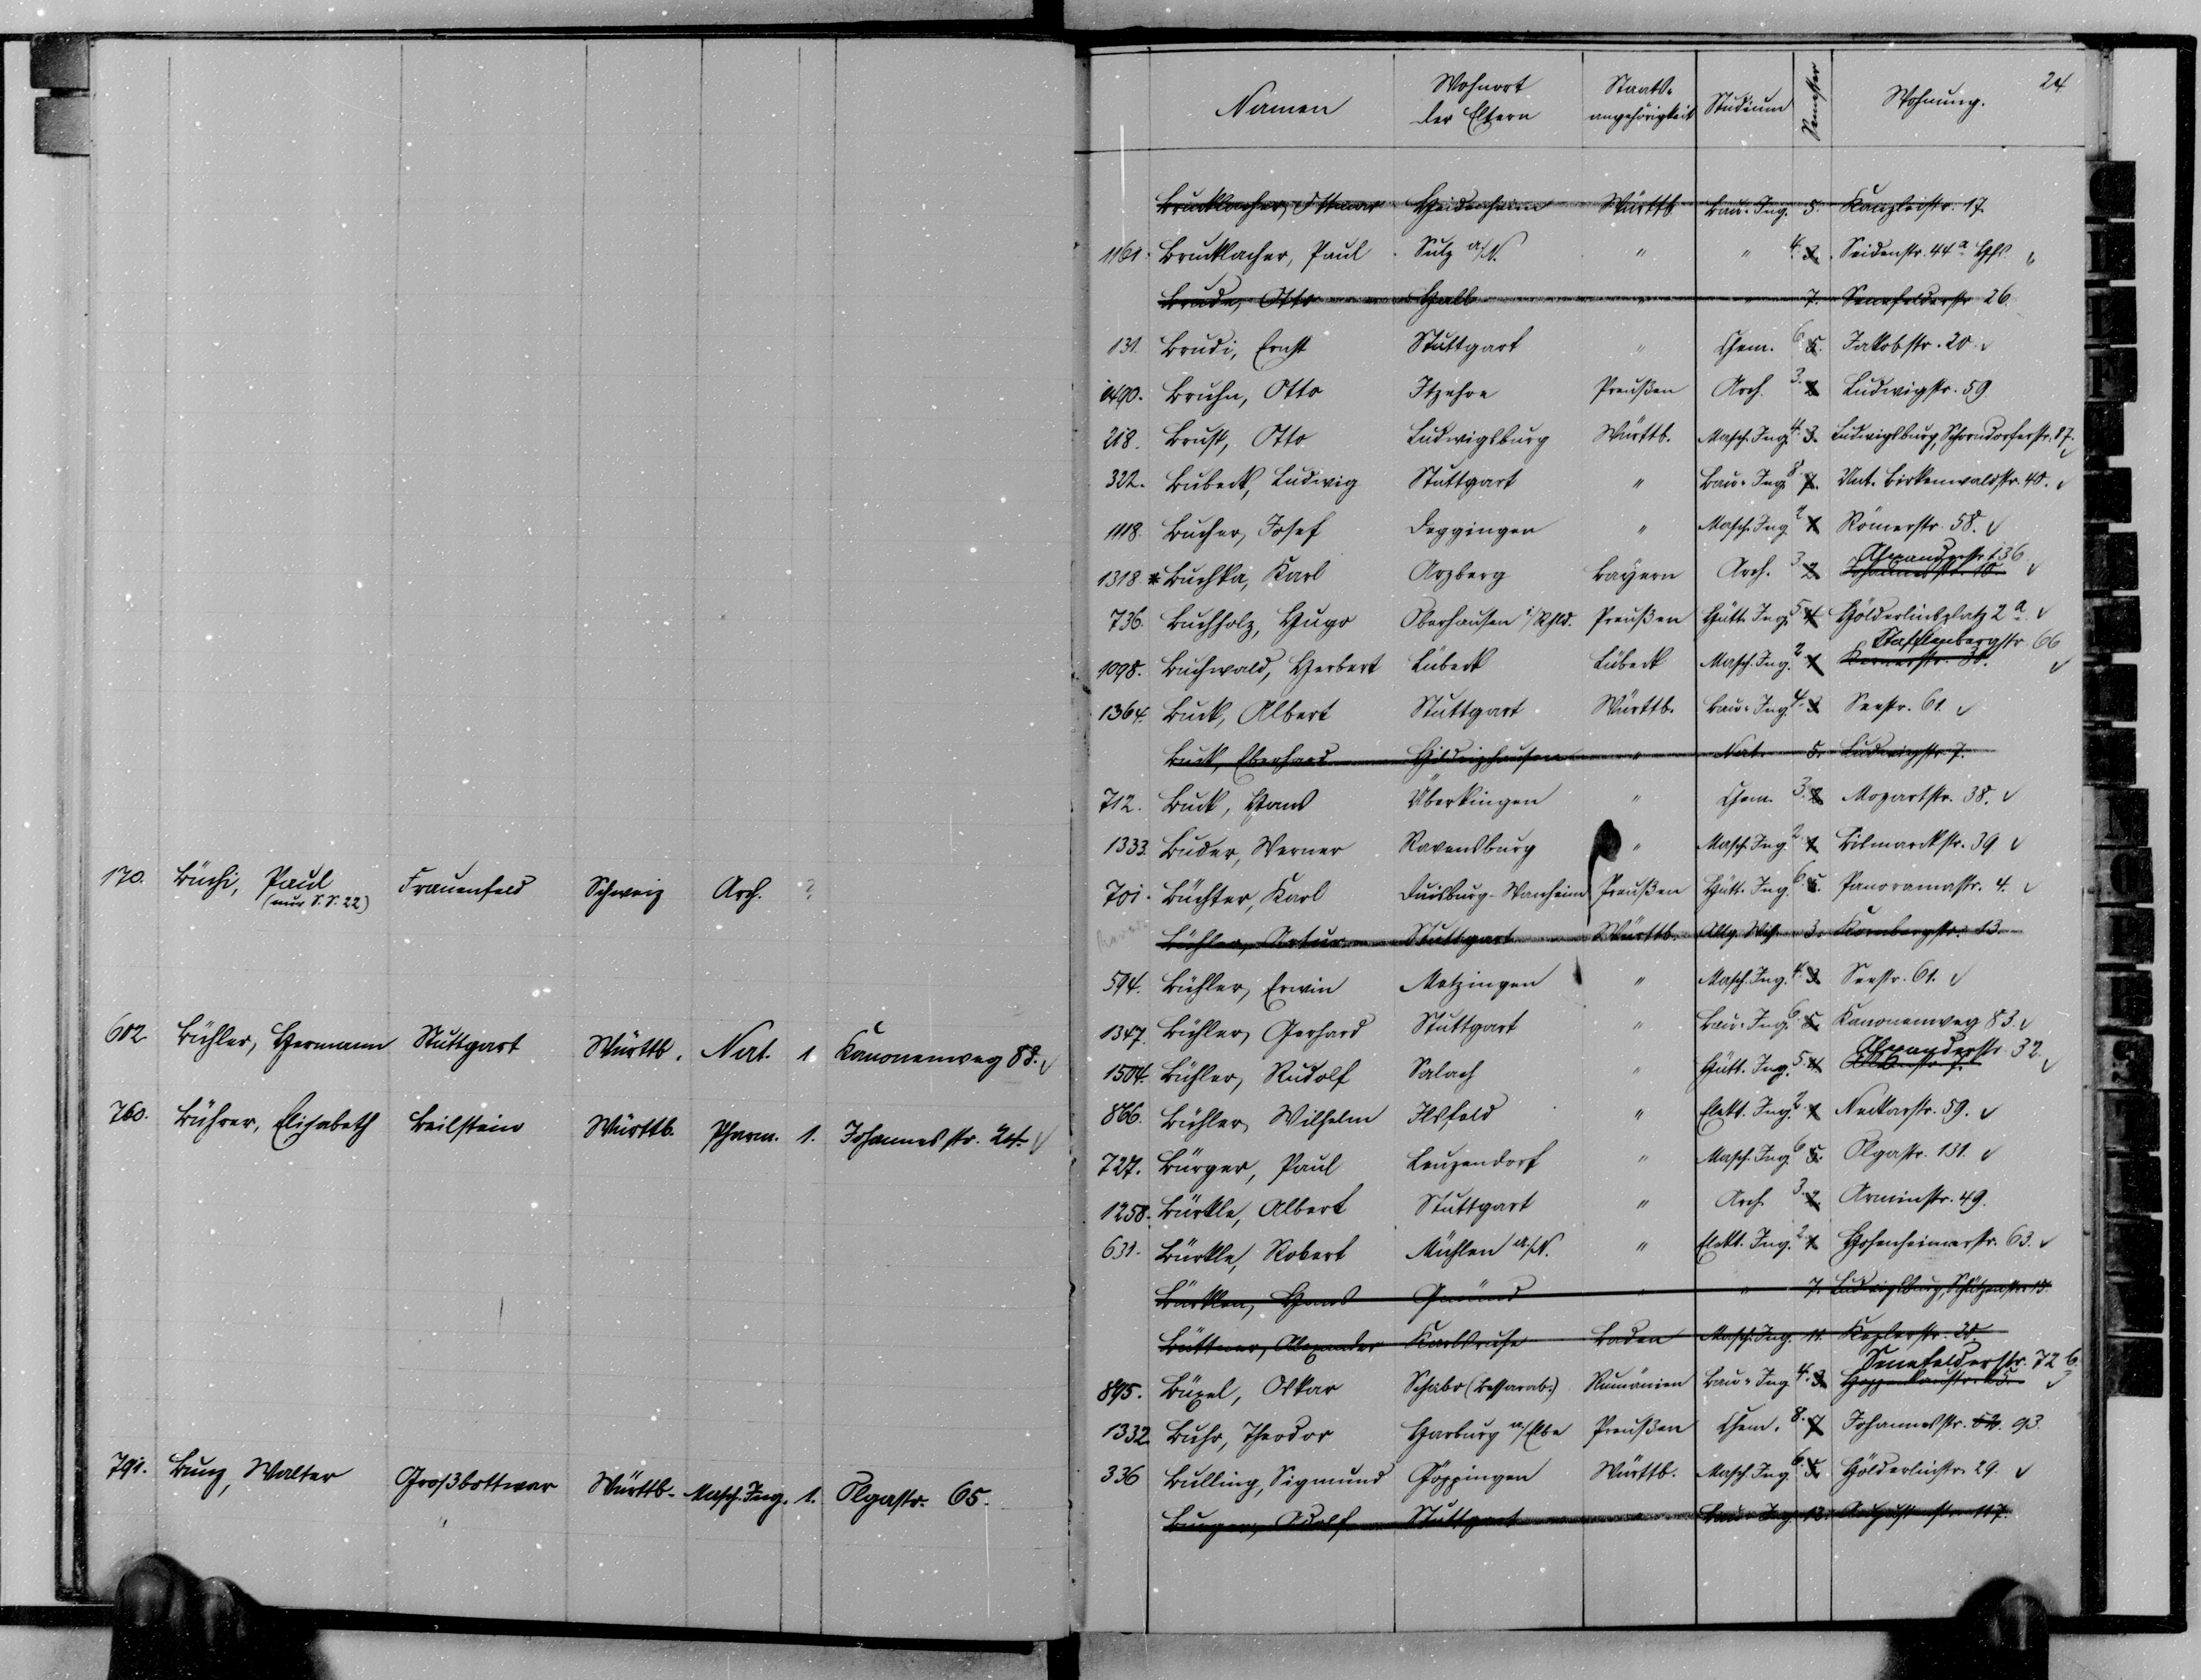 170. Büchi, Paul Frauenfeld Schweiz Arch. ?
(nur S.S. 22)
602 Bühler, Hermann Stuttgart Württb. Nat. 1 Kanonenweg 88.
760. Bührer, Elisabeth Beilstein Württb. Pharm. 1. Johannesstr. 24.
791. Bunz, Walter Großbottwar Württb. Masch. Ing. 1. Olgastr. 65.
24
Namen Wohnort der Eltern Staats-angehörigkeit Studium Semester Wohnung.
Brucklacher, Ottmar Heidenheim Württb Bau-Ing. 5. Kanzleistr. 17.
1161. Brucklacher, Paul Sulz a/N. " " 4. 3. Seidenstr. 44a Hfs.
Brude, Otto Hall " " 7. Senefelderstr 26.
131. Brudi, Ernst Stuttgart " Chem. 6 5. Jakobstr. 20.
1490. Bruhn, Otto Itzehoe Preußen Arch. 3. 2 Ludwigstr. 59
218. Brust, Otto Ludwigsburg Württb. Masch. Ing. 4. 3. Ludwigsburg, Schorndorferstr. 87.
322. Bubeck, Ludwig Stuttgart " Bau-Ing. 8. 7. Unt. Birkenwaldstr. 40.
1118. Bucher, Josef Deggingen " Masch. Ing. 2 1 Römerstr. 58.
Alexanderstr 136
1318 * Buchka, Karl Arzberg Bayern Arch. 3. 2 Johannesstr. 10.
736. Buchholz, Hugo Oberhausen i/Rhld. Preußen Hütt. Ing. 5. 4 Hölderlinsplatz 2a.
Stafflenbergstr. 66
1098. Buchwald, Herbert Lübeck Lübeck Masch. Ing. 2. 1 Kernerstr. 30.
1364. Buck, Albert Stuttgart Württb. Bau-Ing. 4. 3 Seestr. 61.
Buck, Eberhard Hildrizhausen " Nat. 5. Ludwigstr. 7.
712. Buck, Hans Überkingen " Chem. 3. 2 Mozartstr. 38.
1333. Buder, Werner Ravensburg " Masch. Ing. 2. 1 Bismarckstr. 39
701. Büchter, Karl Duisburg-Wanheim Preußen Hütt. Ing. 6. 5. Panoramastr. 4.
Bühler, Artur Stuttgart Württb. Allg. Wiss. 3. Kornbergstr. 13.
594. Bühler, Erwin Metzingen " Masch. Ing. 4. 3 Seestr. 61.
1347. Bühler, Gerhard Stuttgart " Bau-Ing. 6 5. Kanonenweg 83.
Alexanderstr 32.
1504. Bühler, Rudolf Salach " Hütt. Ing. 5. 4
866. Bühler, Wilhelm Ilsfeld " Elekt. Ing. 2. 1 Neckarstr. 59.
727. Bürger, Paul Leuzendorf " Masch. Ing. 6 5. Olgastr. 131.
1258. Bürkle, Albert Stuttgart " Arch. 3. 2 Arminstr. 49.
631. Bürkle, Robert Mühlen a/N. " Elekt. Ing. 2. 1 Hohenheimerstr. 63.
Bürklen, Hans Gmünd " " 7. Ludwigsburg, Schützenstr. 13.
Büttner, Alexander Karlsruhe Baden Masch. Ing. 11. Keplerstr. 20.
Senefelderstr. 72 b.
895. Büxel, Oskar Schabo (Bessarab.) Rumänien Bau-Ing. 4. 3. Hoppenlaustr. 25.
1332 Buhr, Theodor Harburg a/Elbe Preußen Chem. 8. 7 Johannesstr. 52. 93.
336 Bulling, Sigmund Göppingen Württb. Masch. Ing. 6. 5. Hölderlinstr. 29.
Bunger, Adolf Stuttgart " Bau-Ing. 12. Augustenstr. 117.